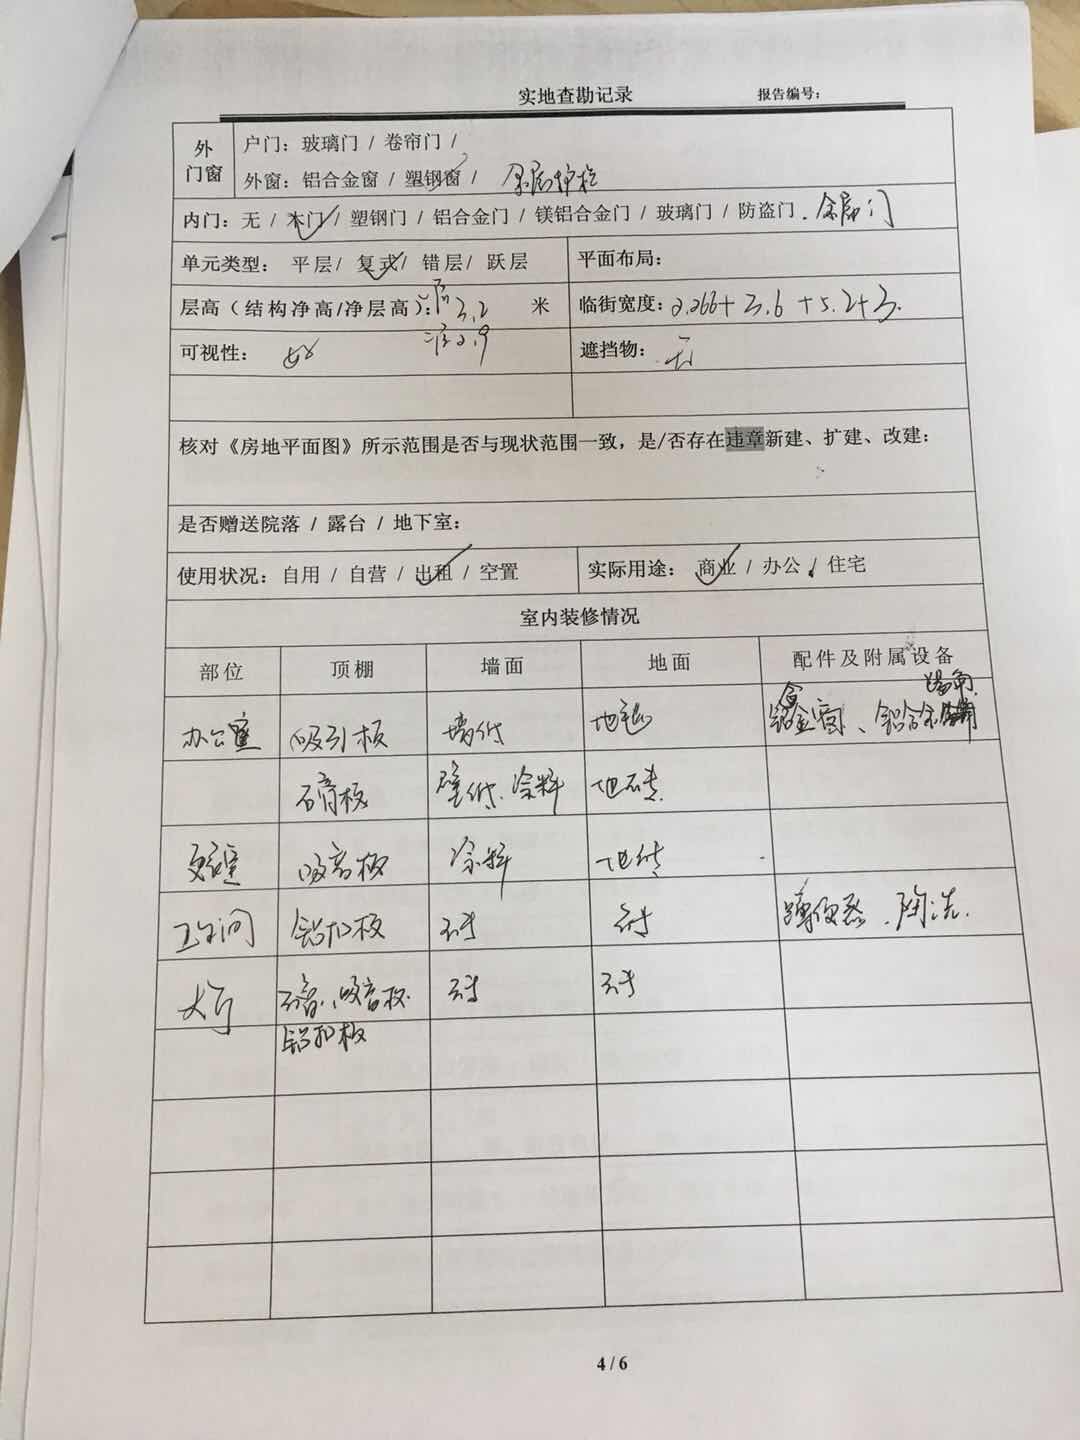 实地查勘记录 报告编号：
外门窗 户门：玻璃门 / 卷帘门 /
外窗：铝合金窗 / 塑钢窗 / 金属护栏
内门：无 / 木门 / 塑钢门 / 铝合金门 / 镁铝合金门 / 玻璃门 / 防盗门 . 金属门
单元类型： 平层/ 复式/ 错层/ 跃层 平面布局：
层高（结构净高/净层高）： 3.2 米 临街宽度：2.266+3.6+5.2+3.
2.9
可视性： 好 遮挡物： 无
核对《房地平面图》所示范围是否与现状范围一致，是/否存在违章新建、扩建、改建：
是否赠送院落 / 露台 / 地下室：
使用状况：自用 / 自营 / 出租 / 空置 实际用途： 商业 / 办公 / 住宅
室内装修情况
部位 顶棚 墙面 地面 配件及附属设备
办公室 吸引板 墙纸 地毯 铝合金窗、铝合金
石膏板 壁纸、涂料 地砖
更衣室 吸音板 涂料 地砖
卫生间 铝扣板 砖 砖 蹲便器、陶洗.
大厅 石膏、吸音板 砖 砖
铝扣板
4 / 6